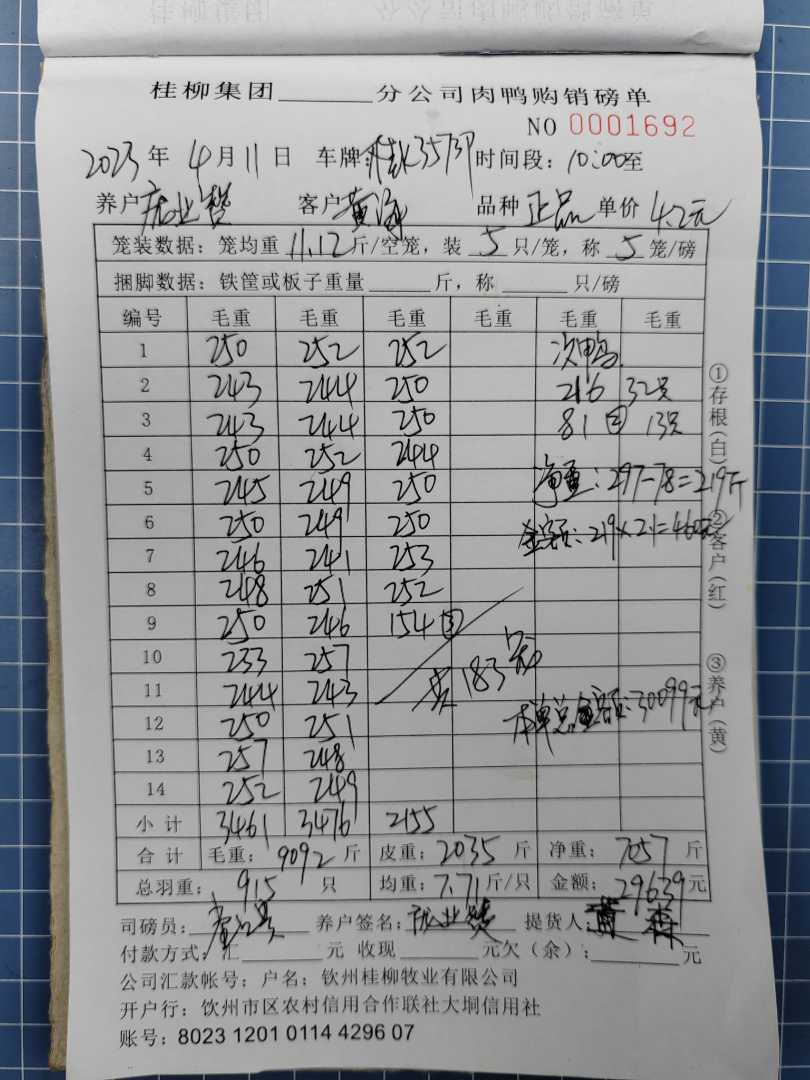 桂柳集团______分公司肉鸭购销磅单
NO 0001692
2023 年 4 月 11 日 车牌: 3573 时间段: 10:00至
养户 业 客户 黄 品种 正品 单价 4.2元
笼装数据: 笼均重 11.12 斤/空笼, 装 5 只/笼, 称 5 笼/磅
捆脚数据: 铁筐或板子重量______斤, 称______只/磅
编号 毛重 毛重 毛重 毛重 毛重 毛重
1 250 252 252 次鸭
2 243 244 250 216 32只
3 243 244 250 81 ② 13只
4 250 252 244
5 245 249 250 净重: 297-78=219斤
6 250 249 250 金额: 219×2.1=460元
7 246 241 253
8 248 251 252
9 250 246 154 ③
10 233 257 共183笼
11 244 243 本单总金额: 30099元
12 250 251
13 257 248
14 252 249
小计 3461 3476 2155
合计 毛重: 9092 斤 皮重: 2035 斤 净重: 7057 斤
总羽重: 915 只 均重: 7.71 斤/只 金额: 29639 元
司磅员: 养户签名: 业 提货人: 黄森
付款方式: 汇______元 收现______元欠(余):______元
公司汇款帐号: 户名: 钦州桂柳牧业有限公司
开户行: 饮州市区农村信用合作联社大垌信用社
账号: 8023 1201 0114 4296 07
①存根(白)
②客户(红)
③养户(黄)